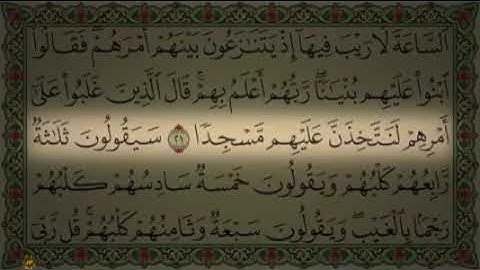 ٱلسَّاعَةَ لَا رَيْبَ فِيهَآ إِذْ يَتَنَٰزَعُونَ بَيْنَهُمْ أَمْرَهُمْ ۖ فَقَالُوا۟
ٱبْنُوا۟ عَلَيْهِم بُنْيَٰنًا ۖ رَّبُّهُمْ أَعْلَمُ بِهِمْ ۚ قَالَ ٱلَّذِينَ غَلَبُوا۟ عَلَىٰٓ
أَمْرِهِمْ لَنَتَّخِذَنَّ عَلَيْهِم مَّسْجِدًا ٢١ سَيَقُولُونَ ثَلَٰثَةٌ
رَّابِعُهُمْ كَلْبُهُمْ وَيَقُولُونَ خَمْسَةٌ سَادِسُهُمْ كَلْبُهُمْ
رَجْمًۢا بِٱلْغَيْبِ ۖ وَيَقُولُونَ سَبْعَةٌ وَثَامِنُهُمْ كَلْبُهُمْ ۚ قُل رَّبِّىٓ